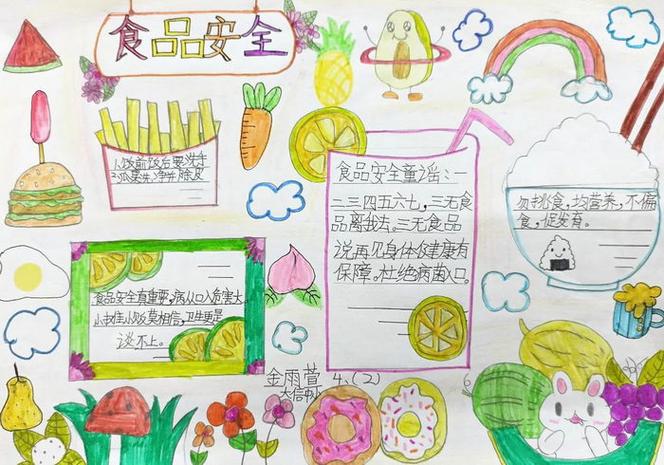 食品安全
1.饭前饭后要洗手
2.瓜果洗净并除皮
食品安全童谣：一
二三四五六七，三无食
品离我去。三无食品
说再见身体健康有
保障。杜绝病菌入口。
勿挑食，均营养，不偏
食，促发育。
食品安全真重要，病从口入危害大
小摊小贩莫相信，卫生更是
谈不上。
金雨萱 4、(2)